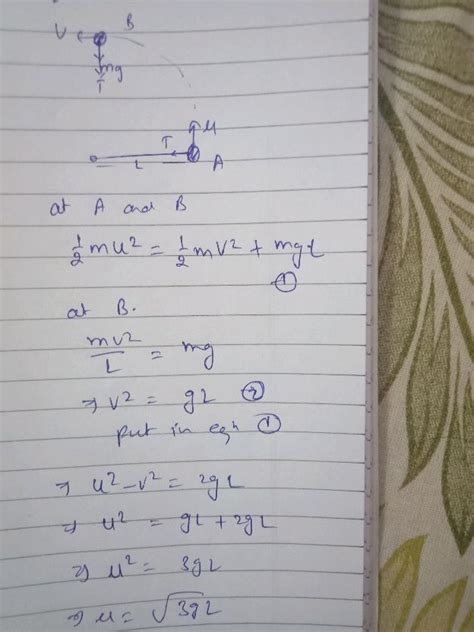 V B
mg
T
u
T
L A
at A and B
½mu² = ½mv² + mgL
①
at B.
mv²/L = mg
⇒ v² = gL ②
put in eqn ①
⇒ u² - v² = 2gL
⇒ u² = gL + 2gL
⇒ u² = 3gL
⇒ u = √3gL